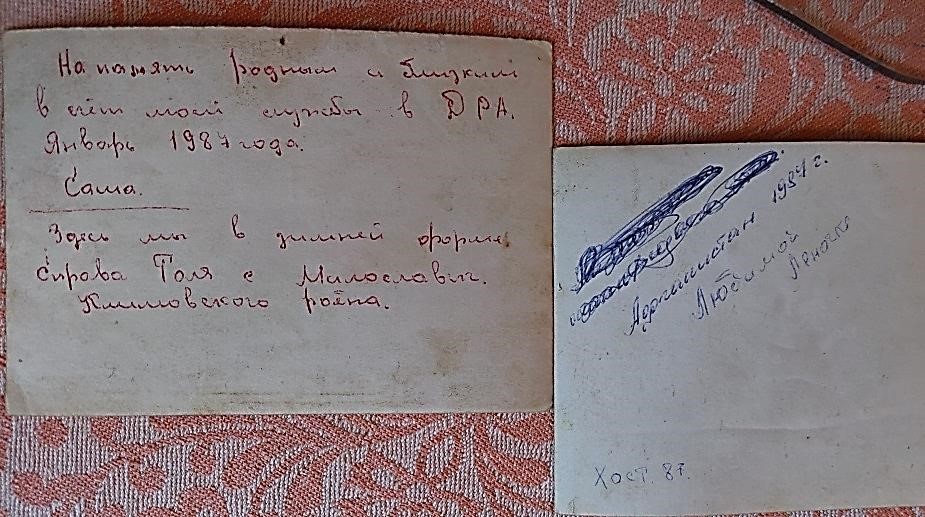 На память родным и близким
в счёт моей службы в ДРА.
Январь 1987 года.
Саша.
Здесь мы в зимней форме
Справа Толя с Милославич.
Климовского района.
Афганистан 1987 г.
Любимой
Леночке
Хост. 87.